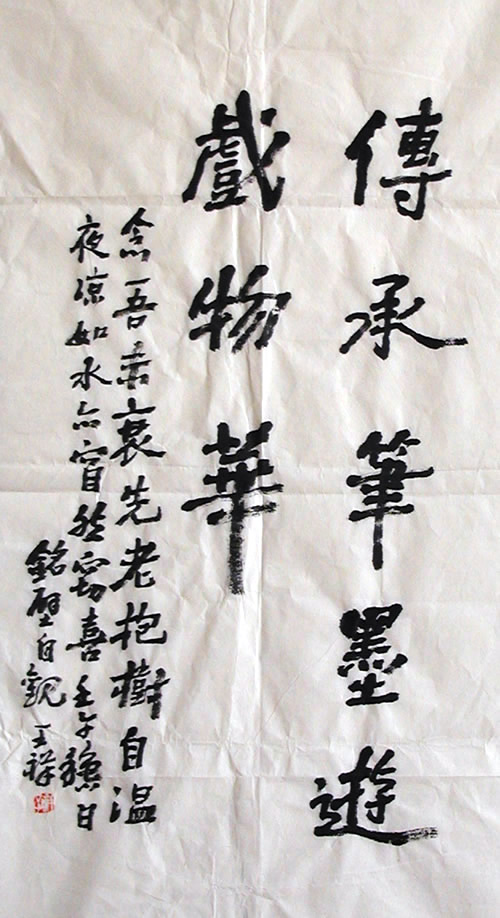 傳承筆墨遊
戲物華
念吾未衰先老抱樹自温
夜凉如水亦窅然竊喜壬午穐日
銘壁自觀 王祥